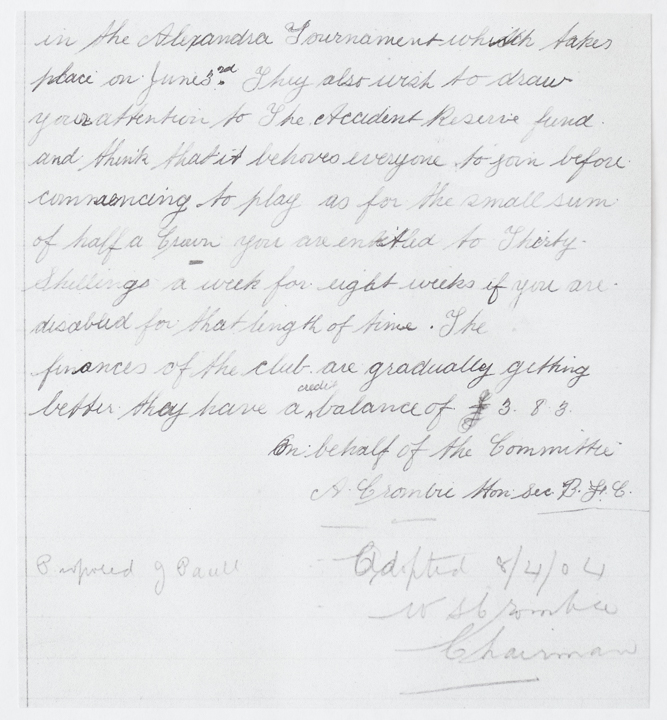 in the Alexandra Tournament which takes
place on June 3rd. They also wish to draw
your attention to The Accident Reserve fund.
and think that it behoves everyone to join before
commencing to play as for the small sum
of half a Crown you are entitled to Thirty
Shillings a week for eight weeks if you are
disabled for that length of time. The
finances of the club are gradually getting
better they have a credit balance of £ 3. 8. 3.
On behalf of the Committee
A. Crombie Hon: Sec B. F. C.
Proposed J Paull
Adopted 8/4/04
W S Crombie
Chairman